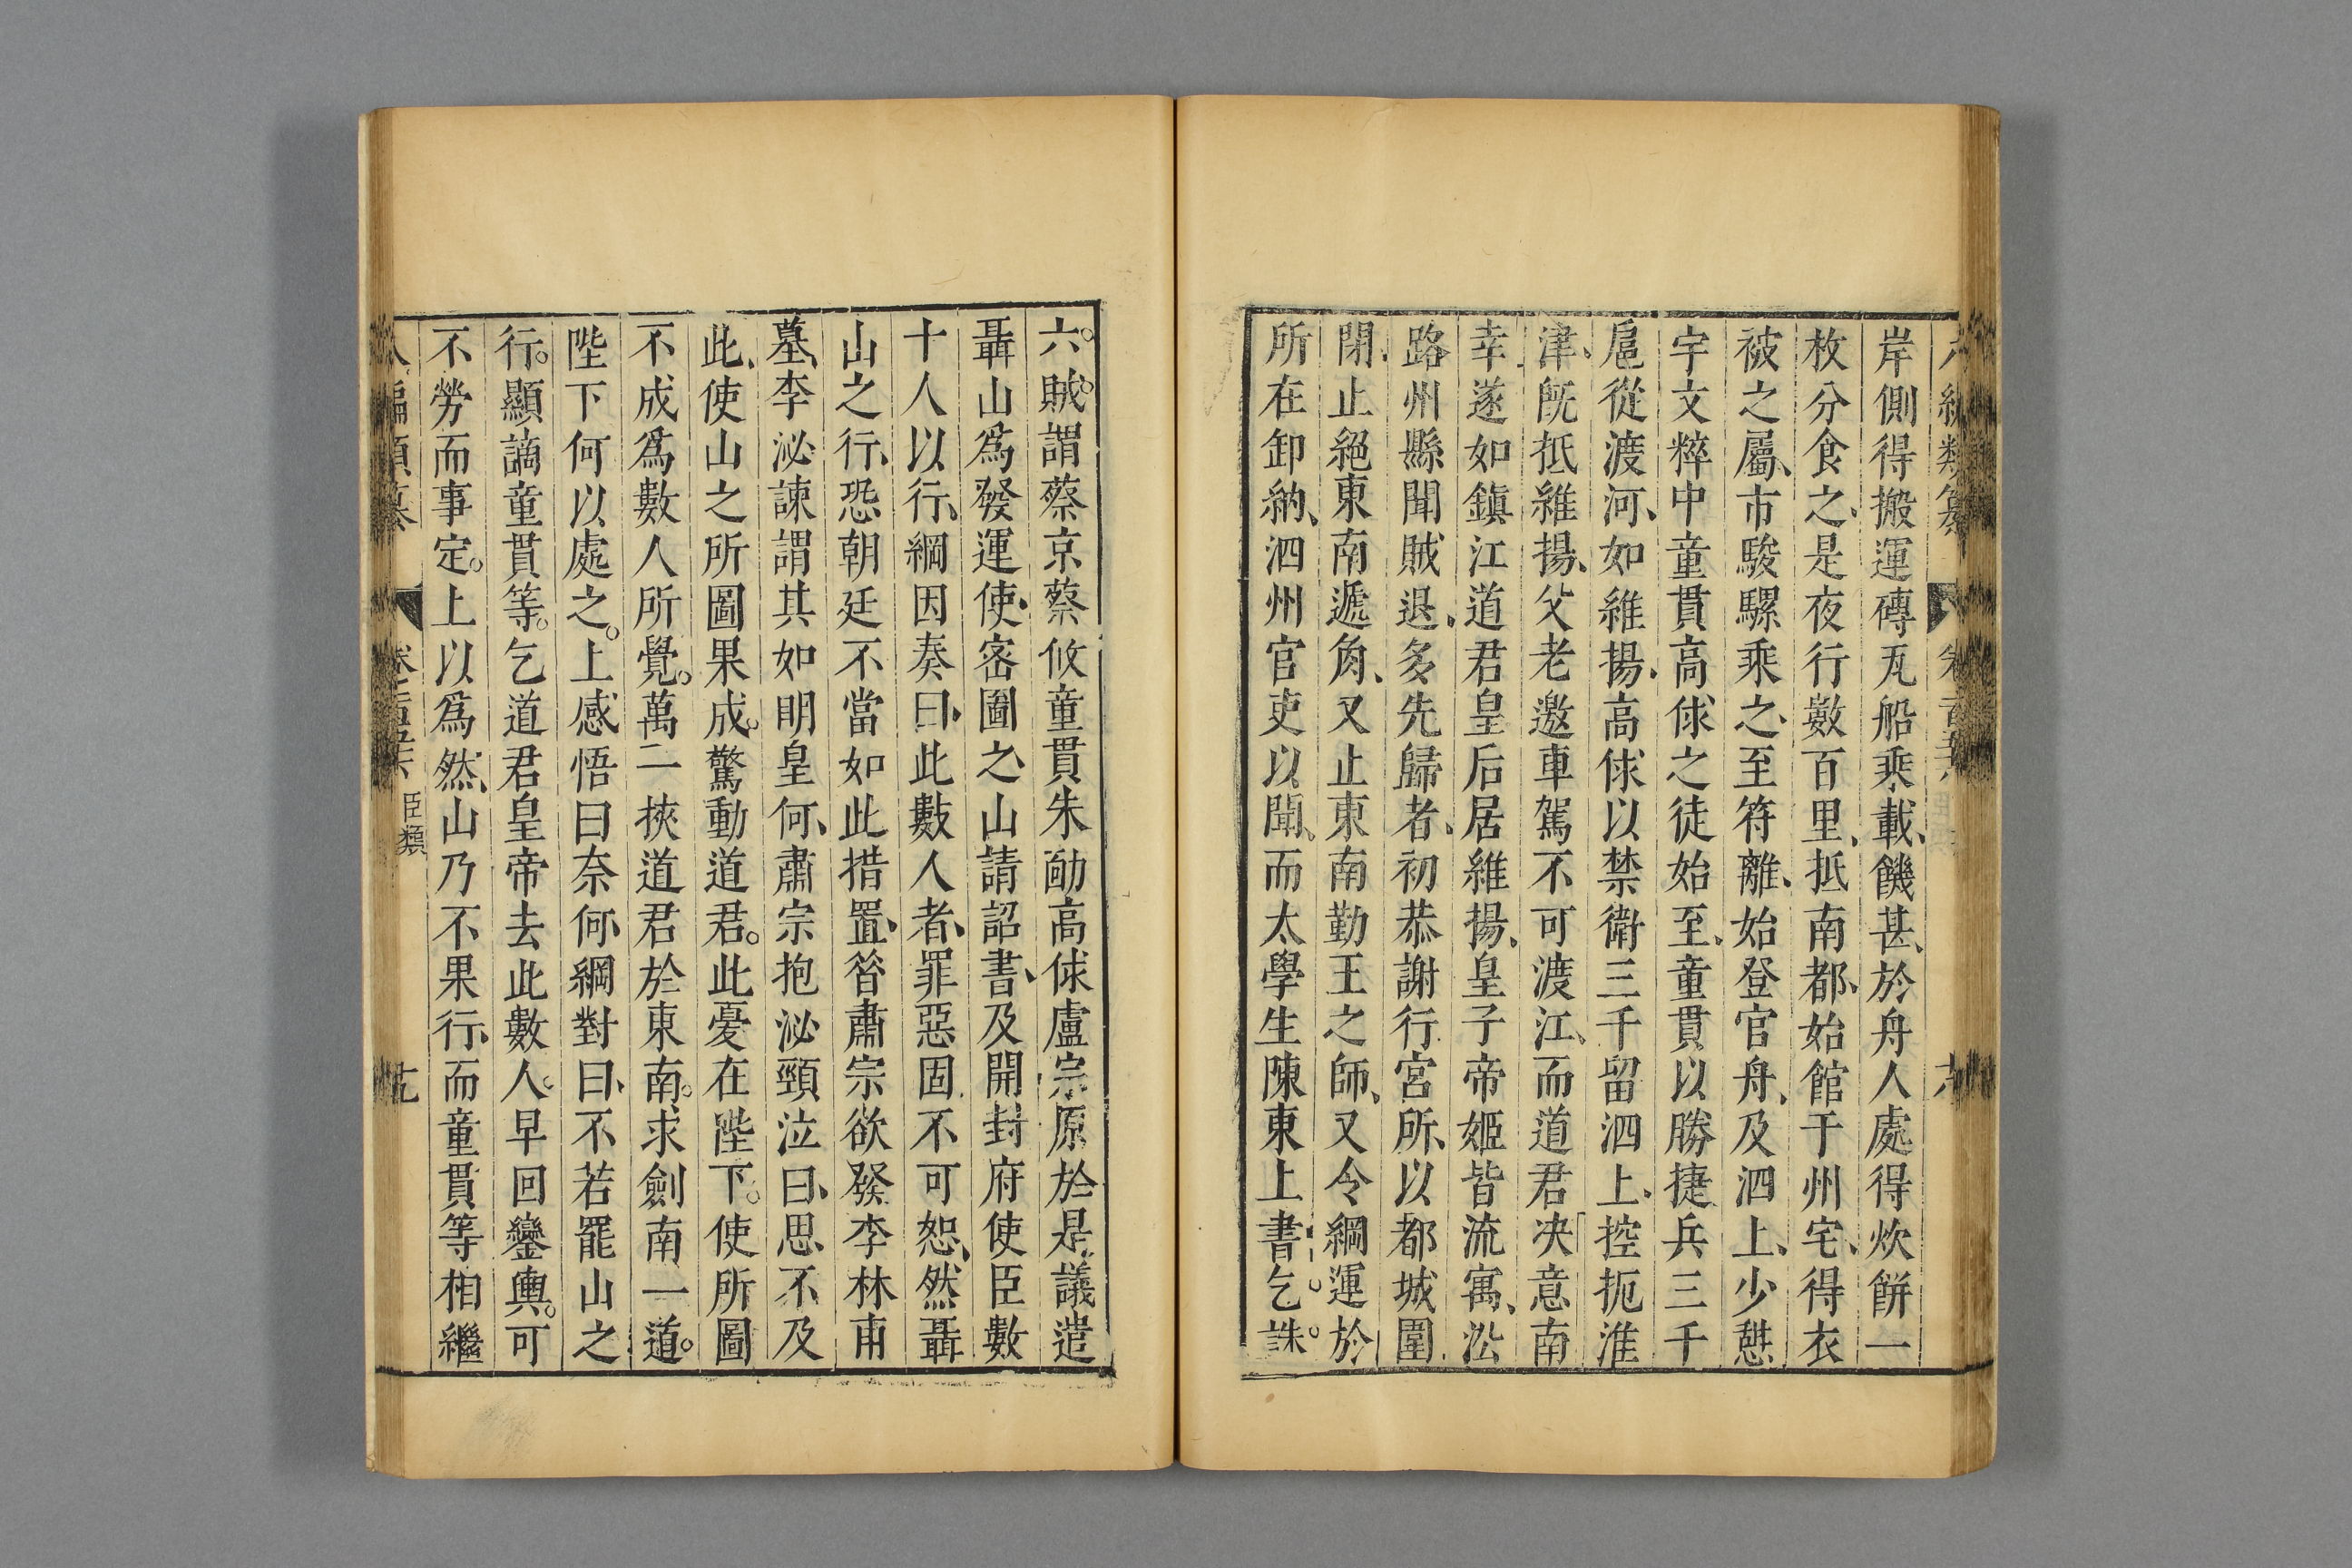 岸側得搬運磚瓦船乘載、饑甚、於舟人處得炊餅一
枚分食之、是夜行數百里、抵南都、始館于州宅、得衣
被之屬、市駿騾乘之、至符離、始登官舟、及泗上、少憇
宇文粹中童貫高俅之徒始至、童貫以勝捷兵三千
扈從渡河、如維揚、高俅以禁衛三千留泗上、控扼淮
津、旣抵維揚、父老邀車駕不可渡江、而道君决意南
幸遂如鎭江道君皇后居維揚、皇子帝姬皆流寓、㳂
路州縣聞賊退、多先歸者、初恭謝行宮所、以都城圍
閉、止絕東南遞角、又止東南勤王之師、又令綱運於
所在卸納、泗州官吏以聞、而太學生陳東上書、乞。誅。
六。賊。謂蔡京蔡攸童貫朱勔高俅盧宗原於是議遣
聶山爲發運使、密圖之、山請詔書、及開封府使臣數
十人以行、綱因奏曰、此數人者、罪惡固不可恕、然聶
山之行、恐朝廷不當如此措置、昝肅宗欲發李林甫
墓、李泌諫謂其如明皇何、肅宗抱泌頸泣曰、思不及
此、使山之所圖果成。驚動道君。此憂在陛下。使所圖
不成爲數人所覺。萬二挾道君於東南。求劍南一道。
陛下何以處之。上感悟曰奈何、綱對曰、不若罷山之
行。顯謫童貫等。乞道君皇帝去此數人。早回鑾輿。可
不勞而事定。上以爲然、山乃不果行、而童貫等相繼
臣類